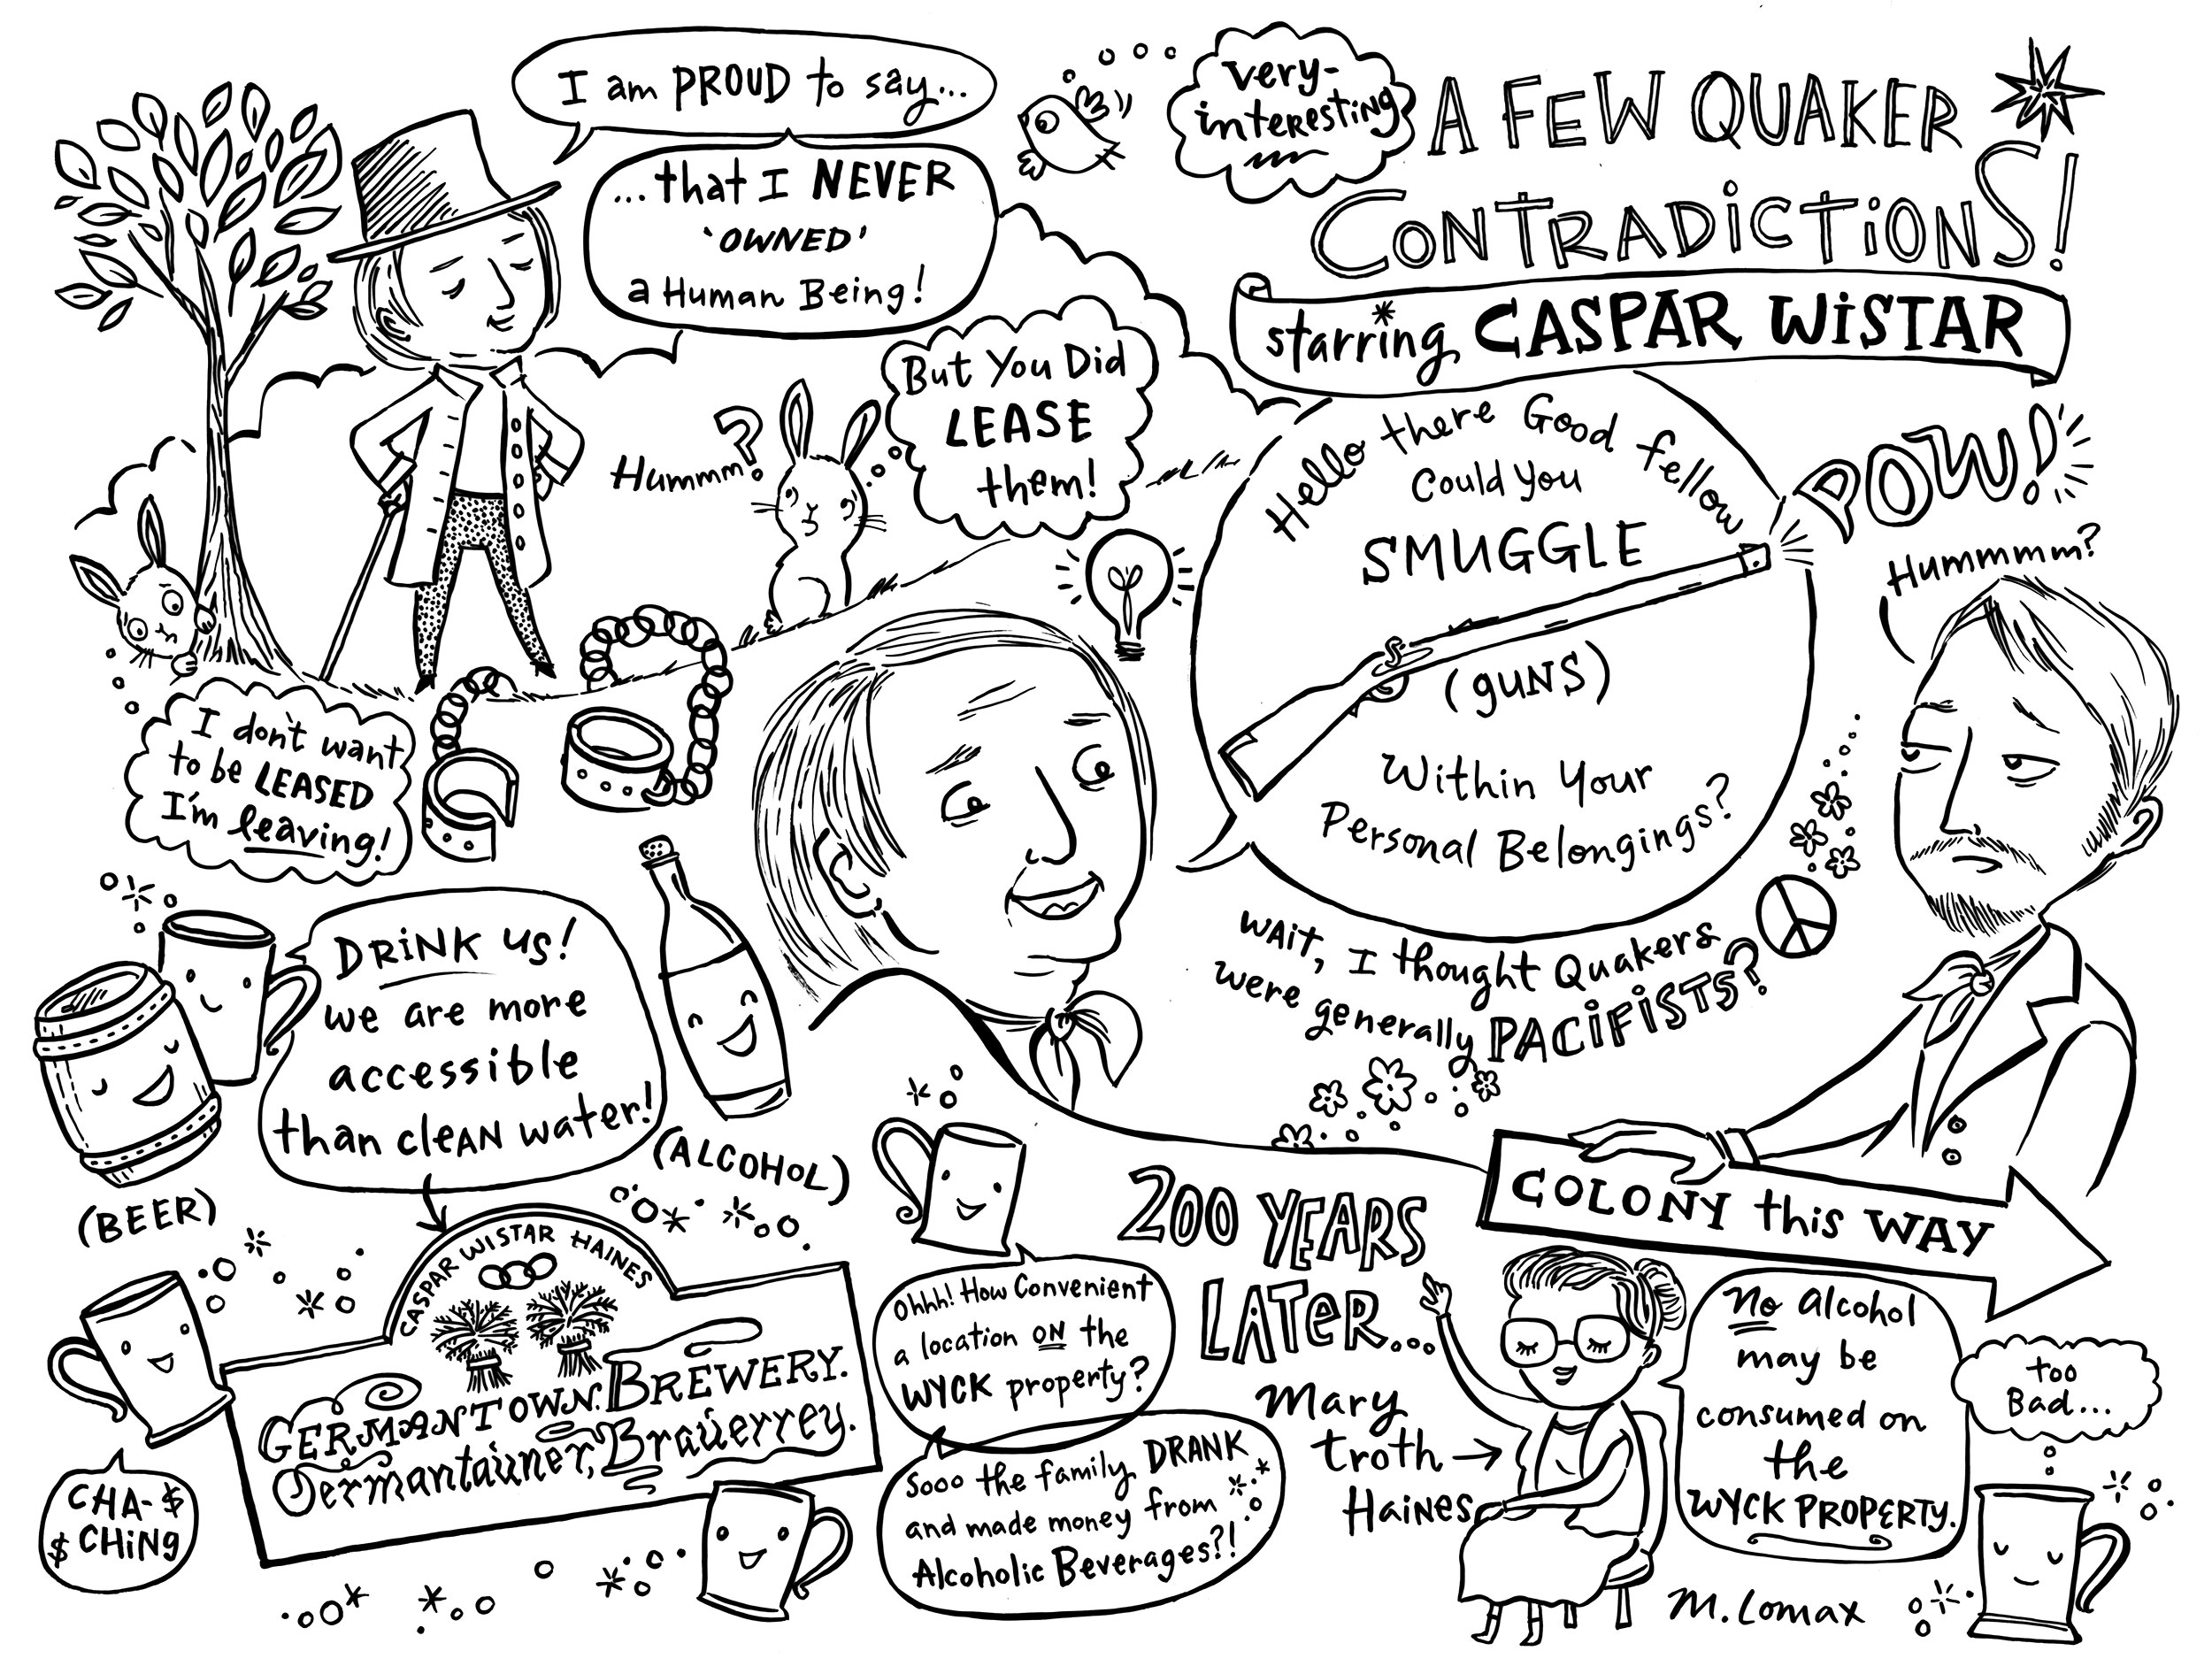 I am PROUD to say...
...that I NEVER
'OWNED'
a Human Being!
very-
interesting
A FEW QUAKER
CONTRADICTIONS!
starring CASPAR WISTAR
Hummm?
But You Did
LEASE
them!
I don't want
to be LEASED
I'm leaving!
Hello there Good fellow
Could you
SMUGGLE
(GUNS)
Within Your
Personal Belongings?
POW!
Hummmm?
Wait, I thought Quakers
were generally PACIFISTS?
COLONY this WAY
DRINK us!
we are more
accessible
than cleAN water!
(BEER)
(ALCOHOL)
CASPAR WISTAR HAINES
GERMANTOWN. BREWERY.
Germantauner, Brauerrey.
CHA-$
$ CHING
Ohhh! How Convenient
a location ON the
WYCK property?
Sooo the family DRANK
and made money from
Alcoholic Beverages?!
200 YEARS
LATER...
Mary
Troth
Haines
No Alcohol
may be
consumed on
the
WYCK PROPERTY.
too
Bad...
M. Lomax